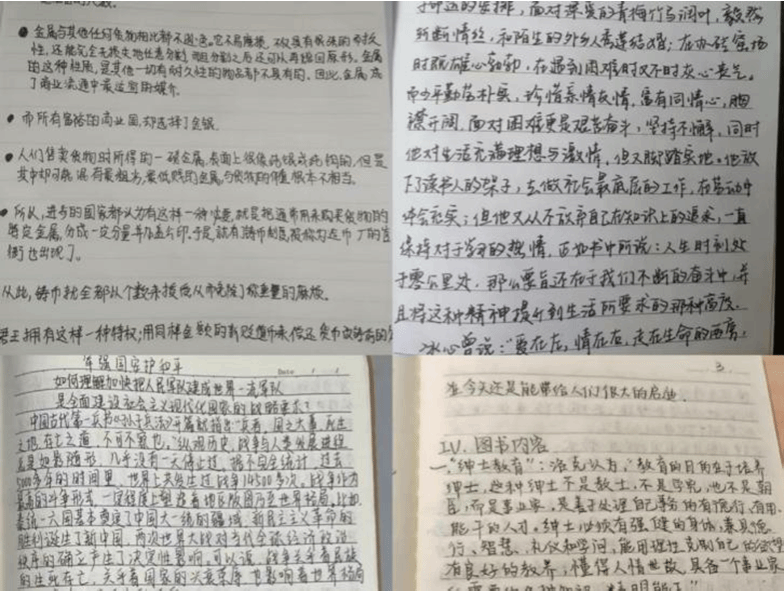 ● 金属与其他任何货物相比都不逊色。它不易磨损，不仅具有很强的耐
性，还能完全无损失地任意分割，而且分割之后还可以再熔回原形。金属
的这种性质，是其他一切有耐久性的物品都不具有的。因此，金属成
了商业流通中最适宜的媒介
● 而所有富裕的商业国，却选择了金银。
● 人们售卖货物时所得的一磅金属，表面上很像纯银或纯铜的，但是
其中却可能混有最粗劣、最低贱的金属，与货物的价值根本不相当。
● 所以，进步的国家都认为有这样一种必要，就是把通常用来购买货物的
特定金属，分成一定分量并加盖片印。于是就有铸币制度，被称为造币厂的官
衙也出现了。
从此，铸币就全都从个数来授受从而免除了称重量的麻烦。
君主拥有这样一种特权：用同样金额的新
命运的安排，面对深爱的青梅竹马润叶，毅然
斩断情丝，和陌生的外乡人秀莲结婚；在办砖窑场
时既雄心勃勃，在遇到困难时又不时灰心丧气。
而少平勤劳朴实，珍惜亲情友情，富有同情心，胸
襟开阔，面对困难更是艰苦奋斗，坚持不懈，同时
他对生活充满理想与激情，但又脚踏实地。他放
下了读书人的架子，去做社会最底层的工作，在劳动中
体会充实；但他又从不放弃自己在知识上的追求，一直
保持对于学习的热情，正如书中所说：人生时刻处
于零公里处，那么要旨还在于我们不断的奋斗中，并
且将这种精神提升到生活所要求的那种高度。
冰心曾说：“爱在左，情在右，走在生命的两旁，
军强国安护和平
Date / /
如何理解加快把人民军队建成世界一流军队
是全面建设社会主义现代化国家的战略要求？
中国古代第一兵书《孙子兵法》开篇就指出“兵者，国之大事，死生
之地，存亡之道，不可不察也。”纵观历史，战争与人类发展进程
总是如影随形，几乎没有一天停止过。据不完全统计，过去
5000多年的时间里，世界上共发生过战争14500多次。战争作为
最高的斗争形式，一定程度上塑造着地区版图乃至世界格局。比如，
秦统一六国基本奠定了中国大一统的疆域，新民主主义革命的
胜利诞生了新中国，两次世界大战对当代全球经济政治
秩序的确立产生了决定性影响。可以说，战争关乎着民族
的生死存亡，关乎着国家的兴衰荣辱，也影响着世界格局
3
在今天还是能带给人们很大的启迪。
IV. 图书内容
一、“绅士教育”：洛克认为，“教育的目的在于培养
绅士，这种绅士不是教士，不是学究，也不是朝
臣，而是事业家，是善于处理自己事务的有德行、有用、
能干的人才。绅士必须有强健的身体，兼具德
行、智慧、礼仪和学问，能用理性克制自己的欲望
有良好的教养，懂得人情世故，具备一个事业家